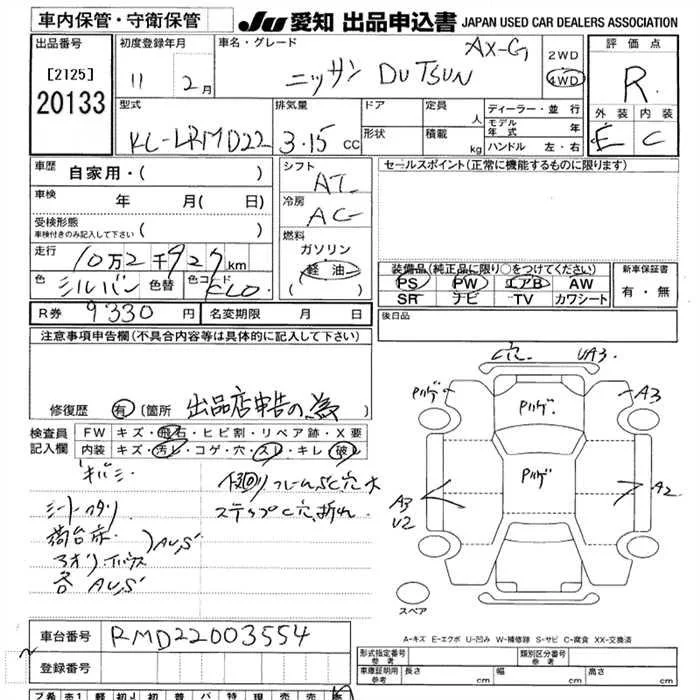 車内保管・守衛保管
JU 愛知 出品申込書 JAPAN USED CAR DEALERS ASSOCIATION
出品番号 初度登録年月 車名・グレード AX-G 2WD 評価点
[2125] 11 2月 ニッサン DUTSUN 4WD R
20133
型式 排気量 ドア 定員 人 ディーラー・並行 外装 内装
KL-LRMD22 3.15 CC 形状 積載 kg モデル年式 年 E C
ハンドル 左・右
車歴 自家用・( ) シフト AT セールスポイント(正常に機能するものに限ります)
車検 年 月( 日) 冷房 AC
受検形態 車検付きのみ記入して下さい ( ) 燃料
走行 10万2千927km ガソリン
軽油 装備品(純正品に限り○をつけてください) 新車保証書
色 シルバー 色替 色コード CLO ( ) PS PW エアB AW 有・無
SR ナビ TV カワシート
R券 9330円 名変期限 月 日 後日品
注意事項申告欄(不具合内容等は具体的に記入して下さい)
C穴 UA3
Pハゲ Pハゲ A3
修復歴 有(箇所 出品店申告の為 )
検査員記入欄 FW キズ・飛石・ヒビ割・リペア跡・X要
内装 キズ・汚レ・コゲ・穴・スレ・キレ・破レ
Pハゲ
下回りフレームSC穴大
シートヘタリ ステップC穴、折れ A3 U2 A2
荷台床
アオリ
各 AU,S
スペア
A-キズ E-エクボ U-凹み W-補修跡 S-サビ C-腐食 XX-交換済
車台番号 RMD22003554
登録番号
形式指定番号 参考 類別区分番号 参考
車庫証明用 参考 長さ cm 幅 cm 高さ cm